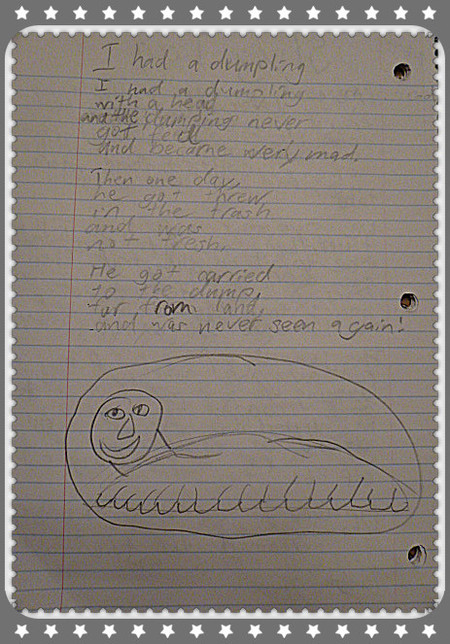 I had a dumpling
I had a dumpling
with a head
and the dumping never
got
and became very mad.
Then one day,
he got threw
in the trash
and was
not fresh,
He got carried
to the dump,
far from land,
and was never seen again!